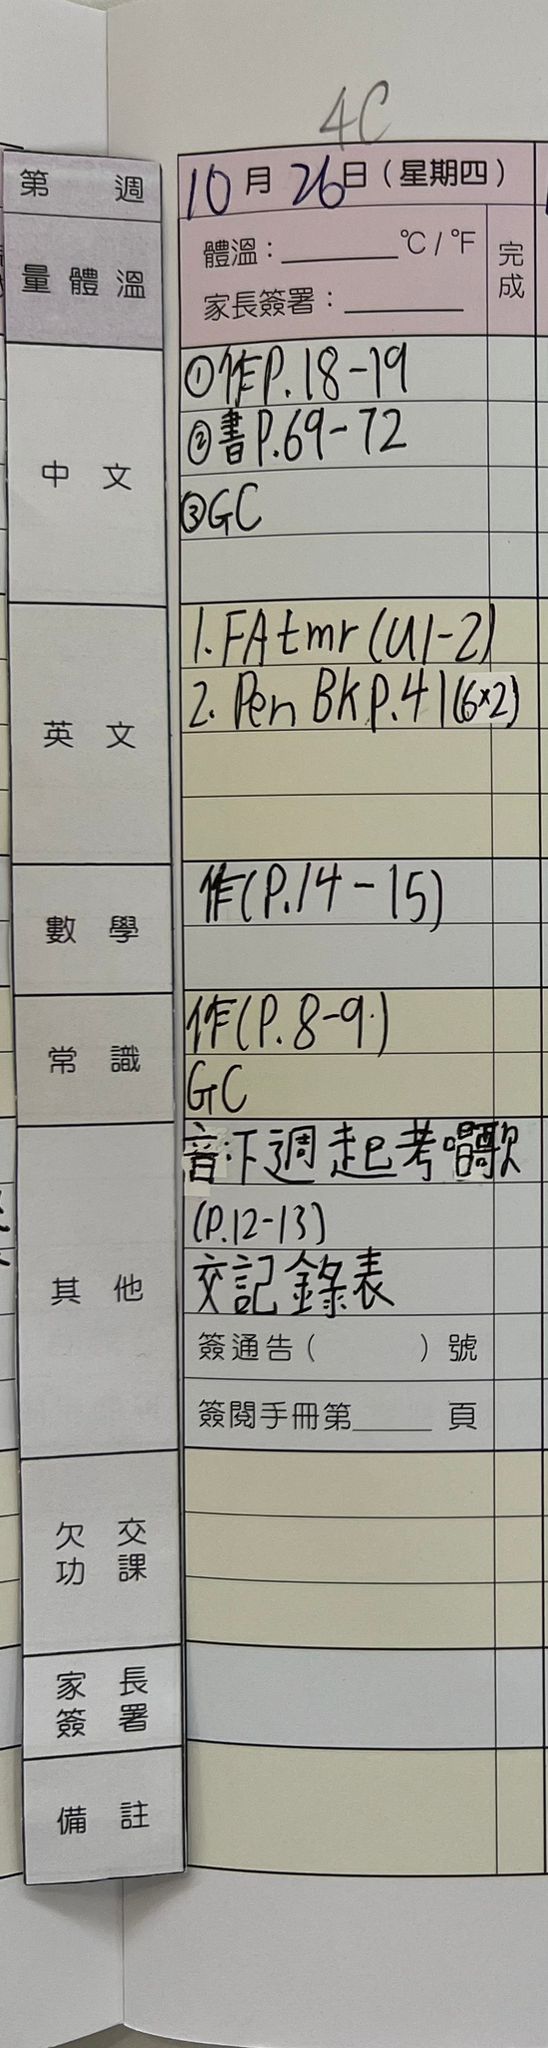 4C
第 週
10月26日(星期四)
量體溫
體溫：______℃/℉
家長簽署：______
完成
中文
①作P.18-19
②書P.69-72
③GC
英文
1. FA tmr (U1-2)
2. Pen Bk P.41(6×2)
數學
作(P.14-15)
常識
作(P.8-9.)
GC
其他
音下週起考唱歌
(P.12-13)
交記錄表
簽通告(　　)號
簽閱手冊第____頁
欠交
功課
家長
簽署
備註